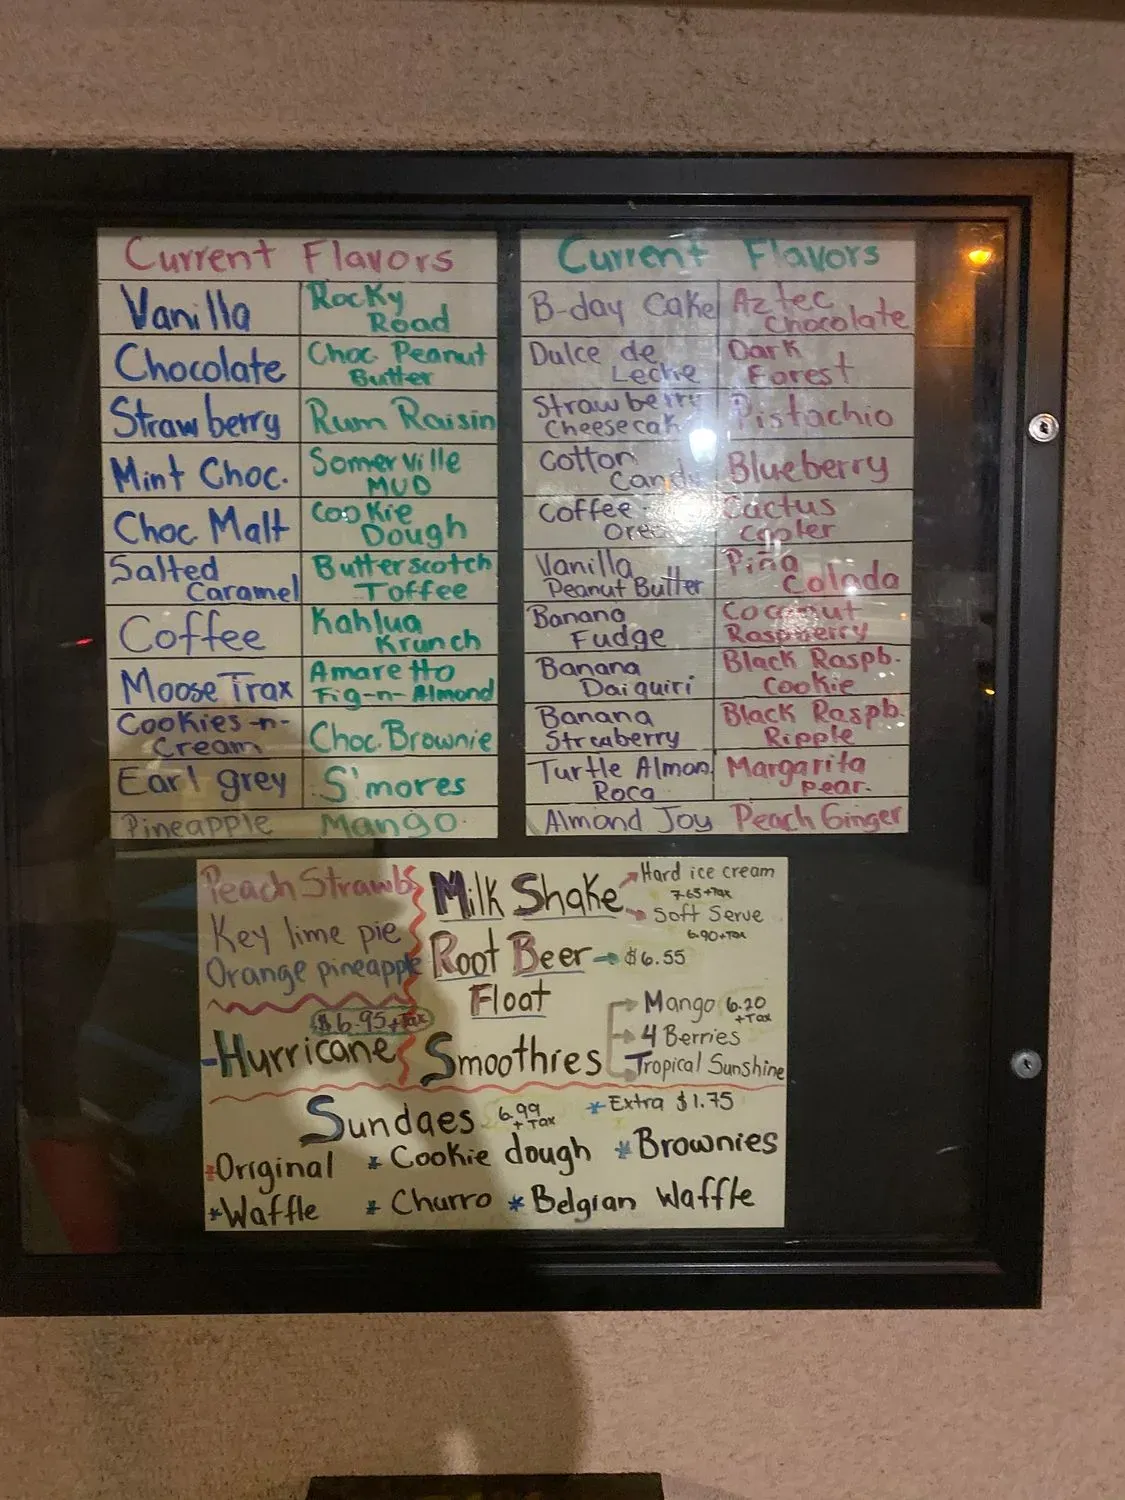 Current Flavors
Vanilla
Rocky
Road
Chocolate
Choc. Peanut
Butter
Strawberry
Rum Raisin
Mint Choc.
Somerville
MUD
Choc Malt
Cookie
Dough
Salted
Caramel
Butterscotch
Toffee
Coffee
Kahlua
Krunch
Moose Trax
Amaretto
Fig-n-Almond
Cookies-n-
Cream
Choc. Brownie
Earl grey
S'mores
Pineapple
Mango
Current Flavors
B-day Cake
Aztec
Chocolate
Dulce de
Leche
Dark
Forest
Strawberry
Cheesecak
Pistachio
Cotton
Candy
Blueberry
Coffee
Oreo
Cactus
Cooler
Vanilla
Peanut Butter
Piña
Colada
Banana
Fudge
Coconut
Raspberry
Banana
Daiquiri
Black Raspb.
Cookie
Banana
Strcaberry
Black Raspb.
Ripple
Turtle Almon
Roca
Margarita
pear.
Almond Joy
Peach Ginger
Peach Strawb
Key lime pie
Orange pineapple
$6.95+Tax
-Hurricane
Milk Shake
Hard ice cream
7.65+Tax
Soft Serve
6.90+Tax
Root Beer
$6.55
Float
Smoothies
Mango 6.20
+Tax
4 Berries
Tropical Sunshine
Sundaes 6.99
+Tax
*Extra $1.75
*Original
*Cookie dough
*Brownies
*Waffle
*Churro
*Belgian Waffle